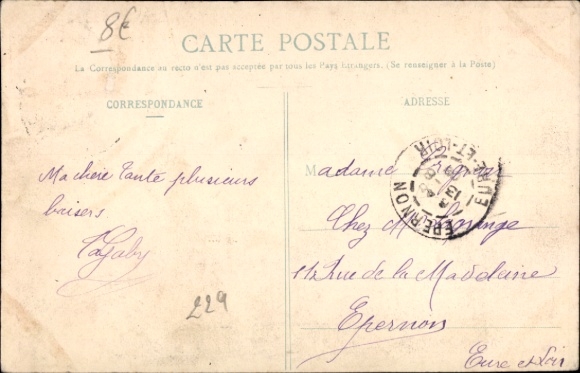 8€
CARTE POSTALE
La Correspondance au recto n'est pas acceptée par tous les Pays Étrangers. (Se renseigner à la Poste)
CORRESPONDANCE
ADRESSE
Ma chère tante plusieurs
baisers
Ta Gaby
229
Madame
Chez M
Rue de la Madeleine
Epernon
Eure et Loir
EPERNON
EURE-ET-LOIR